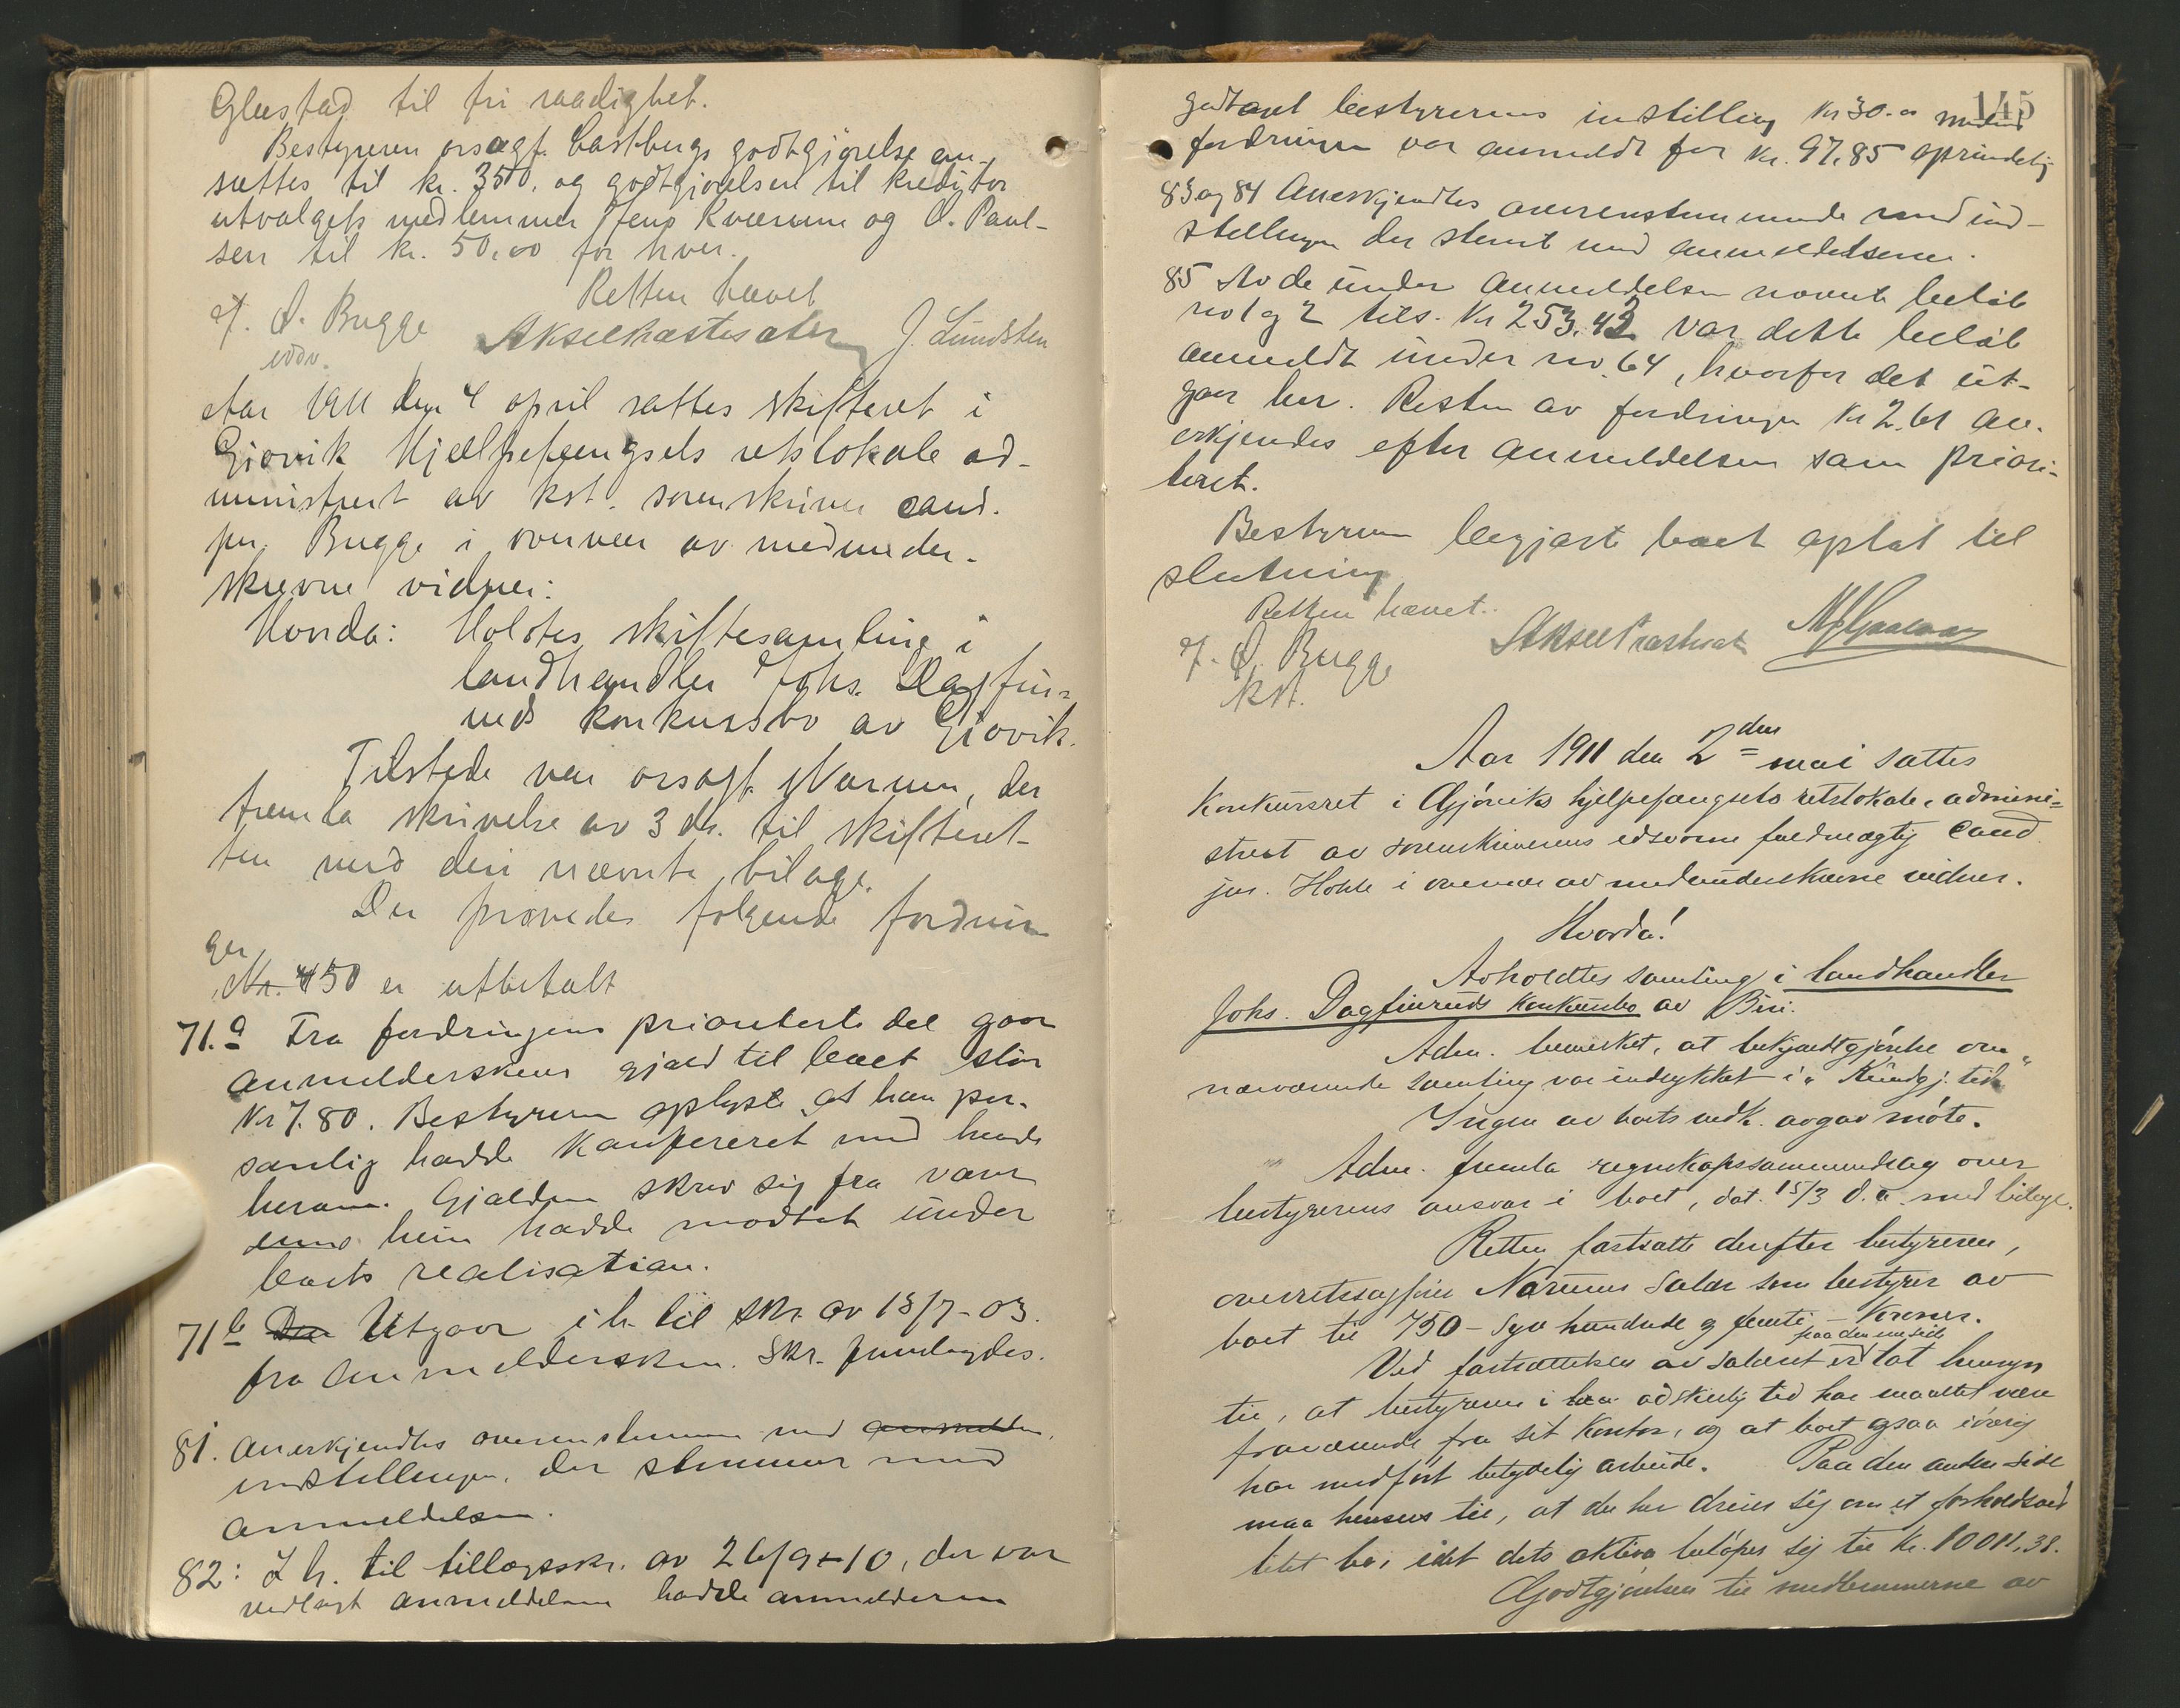 Glestad til fri raadighet.
Bestyreren orsagf. Castbergs godtgjörelse an-
sættes til kr. 350, og godtgjörelsen til kreditor
utvalgets medlemmer Jens Kværum og O. Paul-
sen til kr. 50,00 for hver.
Retten hævet
J. O. Bugge
edv.
J. Lundsten
Aar 1911 den 4 april sattes skifteret i
Gjøvik Hjælpefængsels retslokale ad-
ministrert av kst. sorenskriver cand.
jur. Bugge i overvær av medunder-
skrevne vidner:
Hvorda: Holdtes skiftesamling i
landhandler Johs. Dagfin-
ruds konkursbo av Gjøvik.
Tilstede var orsagf. Narum, der
fremla skrivelse av 3 ds. til skifteret-
ten med deri nævnte bilage.
Der prøvedes følgende fordrin
ger
Nr. 450 er utbetalt
71.a Fra fordringens prioriterte del gaar
anmelderskens gjæld til boet stor
Kr 7.80. Bestyreren oplyste at han per-
sonlig hadde konfereret med hende
herom. Gjælden skrev sig fra varer
hun hadde modtat under
boets realisation.
71b Der Utgaar i h. til skr. av 13/7-03.
fra anmeldersken. Skr. fremlagdes.
81. Anerkjendtes overenstemm. med anmelden.
indstillingen, der stemmer med
anmeldelsen.
82: I h. til tillægsskr. av 26/9-10, der var
vedlagt anmeldelsen hadde anmelderen
145
godtaet bestyrerens indstilling Kr 30.00 mens
fordringen var anmeldt for Kr. 97,85 oprindelig
83 og 84 Anerkjendtes overenstemmende med ind-
stillingen der stemt med anmeldelserne.
85 Av de under anmeldelsen nævnte beløb
no 1 og 2 tils. Kr 253.42 var dette beløb
anmeldt under no. 64, hvorfor det ut-
gaar her. Resten av fordringen Kr 2.61 an-
erkjendes efter anmeldelsen som priori-
teret.
Bestyreren begjært boet optat til
slutning
Retten hævet.
J. O. Bugge
kst.
Aar 1911 den 2den mai sattes
Konkursret i Gjøviks hjelpefængsels retslokale, admini-
strert av sorenskriverens edsvorne fuldmægtig cand.
jur. Holte i overvær av medunderskrevne vidner.
Hvorda!
Avholdtes samling i landhandler
Johs. Dagfinruds konkursbo av Biri.
Adm. bemerket, at bekjendtgjørelse om
nærværende samling var indrykket i "Kundgj. tid."
Ingen av boets vedk. avgav møte.
Adm. fremla regnskapssammendrag over
bestyrerens ansvar i boet, dat. 15/3 d.a. med bilage.
Retten fastsatte derefter bestyreren,
overretssagfører Narums salær som bestyrer av
boet til 750 - Syv hundrede og femti - Kroner.
Ved fastsættelsen av salæret er paa den ene side tat hensyn
til, at bestyreren i adskillig tid har maattet være
fraværende fra sit kontor, og at boet ogsaa iøvrig
har medført betydelig arbeide. Paa den anden side
maa hensees til, at der her dreier sig om et forholdsvis
litet bo, idet dets aktiva beløper sig til kr. 10011,38.
Godtgjørelsen til medlemmerne av